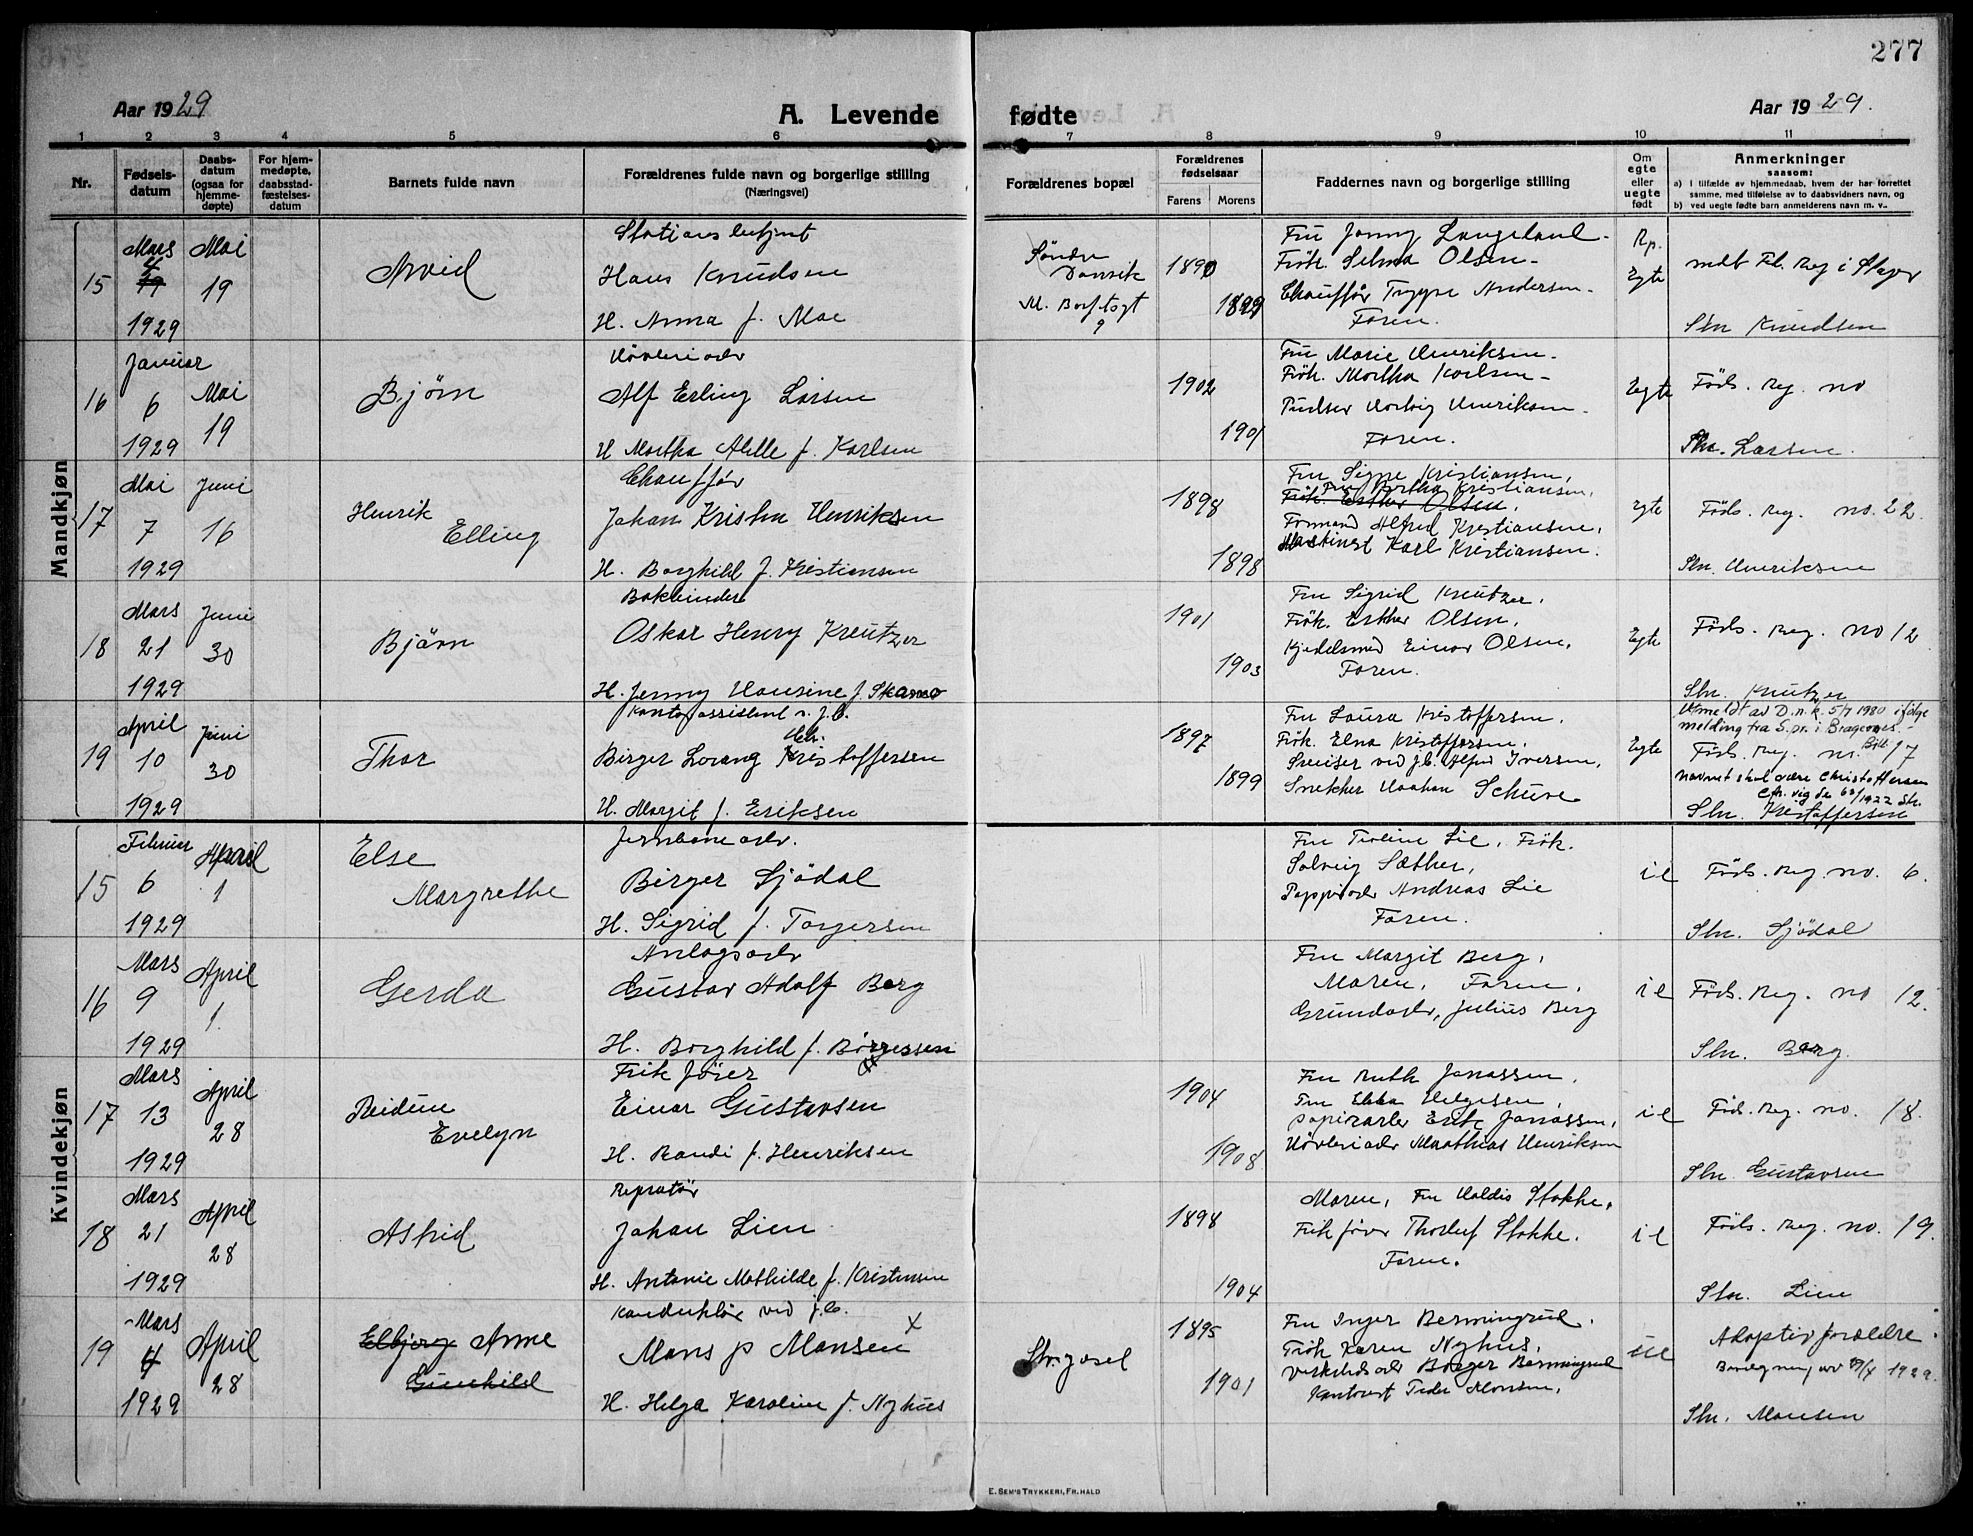 277
Aar 1929
A. Levende
fødte
Aar 1929.
1 2 3 4 5 6 7 8 9 10 11
Nr.
Fødsels-
datum
Daabs-
datum
(ogsaa for
hjemme-
døpte)
For hjem-
medøpte,
daabsstad-
fæstelses-
datum
Barnets fulde navn
Forældrenes fulde navn og borgerlige stilling
(Næringsvei)
Forældrenes bopæl
Forældrenes
fødselsaar
Farens Morens
Faddernes navn og borgerlige stilling
Om
egte
eller
uegte
født
Anmerkninger
saasom:
a) i tilfælde av hjemmedaab, hvem der har forrettet
samme, med tilføielse av to daabsvidners navn, og
b) ved uegte fødte barn anmelderens navn m. v..
Mandkjøn
15
Mars
4
1929
Mai
19
Arvid
Hans Knudsen
H. Anna f. Moe
Søndre
1890
1899
Fru Jenny Langeland
Frøk. Selma Olsen
Chauffør Trygve Andersen
Faren.
Egte
Stn Knudsen
16
Januar
6
1929
Mai
19
Bjørn
Høvleriarb
Alf Erling Larsen
H Martha Alille f. Karlsen
1902
1901
Fru Marie Henriksen
Frøk. Martha Karlsen
Pudser Hartvig Henriksen
Faren.
Egte
Føds. Reg. no
Stn. Larsen.
17
Mai
7
1929
Juni
16
Henrik
Elling
Chauffør
Johan Kristen Henriksen
H. Borghild f. Kristiansen
1898
1898
Fru Signe Kristiansen,
Fru Bertha Kristiansen,
Frøk. Esther Olsen,
Formand Alfred Kristiansen,
Maskinist Karl Kristiansen.
Egte
Føds. Reg. no. 22.
Stn. Henriksen
18
Mars
21
1929
Juni
30
Bjørn
Bokbinder
Oskar Henry Kreutzer
H. Jenny Hansine f. Skamo
1901
1903
Fru Sigrid Kreutzer,
Frøk. Esther Olsen,
Kjedelsmed Einar Olsen,
Faren.
Egte
Føds. Reg. no 12
Stn. Kreutzer
19
April
10
1929
Juni
30
Thor
Kontorassistent v. J.b.
Ch.
Birger Lorang Kristoffersen
H. Margit f. Eriksen
1897
1899
Fru Laura Kristoffersen,
Frøk. Elna Kristoffersen,
Smeiser ved J.b. Alfred Iversen,
Snekker Haakon Schure
Egte
Utmeldt av D.n.k. 5/7 1980 ifølge
melding fra S.pr. i Bragernes.
Føds. Reg. no. 17
Navnet skal være Christoffersen
Stn. Kristoffersen
Kvindekjøn
15
Februar
6
1929
April
1
Else
Margrethe
Jernbanearb.
Birger Sjødal
H. Sigrid f. Torgersen
Fru Teoline Lie, Frøk.
Solveig Sæther,
Papirarb Andreas Lie
Faren.
il
Føds. Reg. no. 6.
Stn. Sjødal
16
Mars
9
1929
April
1.
Gerda
Anlægsarb
Gustav Adolf Berg
H. Borghild f. Børgessen
Fru Margit Berg,
Moren, Faren,
Grundarb, Julius Berg
il
Føds. Reg. no 12.
Stn. Berg.
17
Mars
13
1929
April
28
Reidun
Evelyn
Einar Gustavsen
H. Randi f. Henriksen
1904
1908
Fru Ruth Jonassen,
Fru Ebba Helgesen,
Papirarb Erik Jonassen,
Høvleriarb Matthias Henriksen
il
Føds. Reg. no. 18.
Stn. Gustavsen
18
Mars
21
1929
April
28
Astrid
Repratør
Johan Lien
H. Antonie Mathilde f. Kristensen
1898
1904
Moren, Fru Valdis Stokke,
Thorleif Stokke.
Faren.
il
Føds. Reg. no. 19.
Stn. Lien
19
Mars
4
1929
April
28
Elbjørg Anne
Gunhild
Konduktør ved J.b.
Mons P Monsen x
H. Helga Karoline f. Nyhus
1895
1901
Fru Inger Bermingrud.
Frøk Karen Nyhus,
Virkledsarb Borger Bermingrud
Kontorist Peder Monsen,
Adoptivforældre.
1929.
Stn. Monsen
E. SEM'S TRYKKERI, FR.HALD